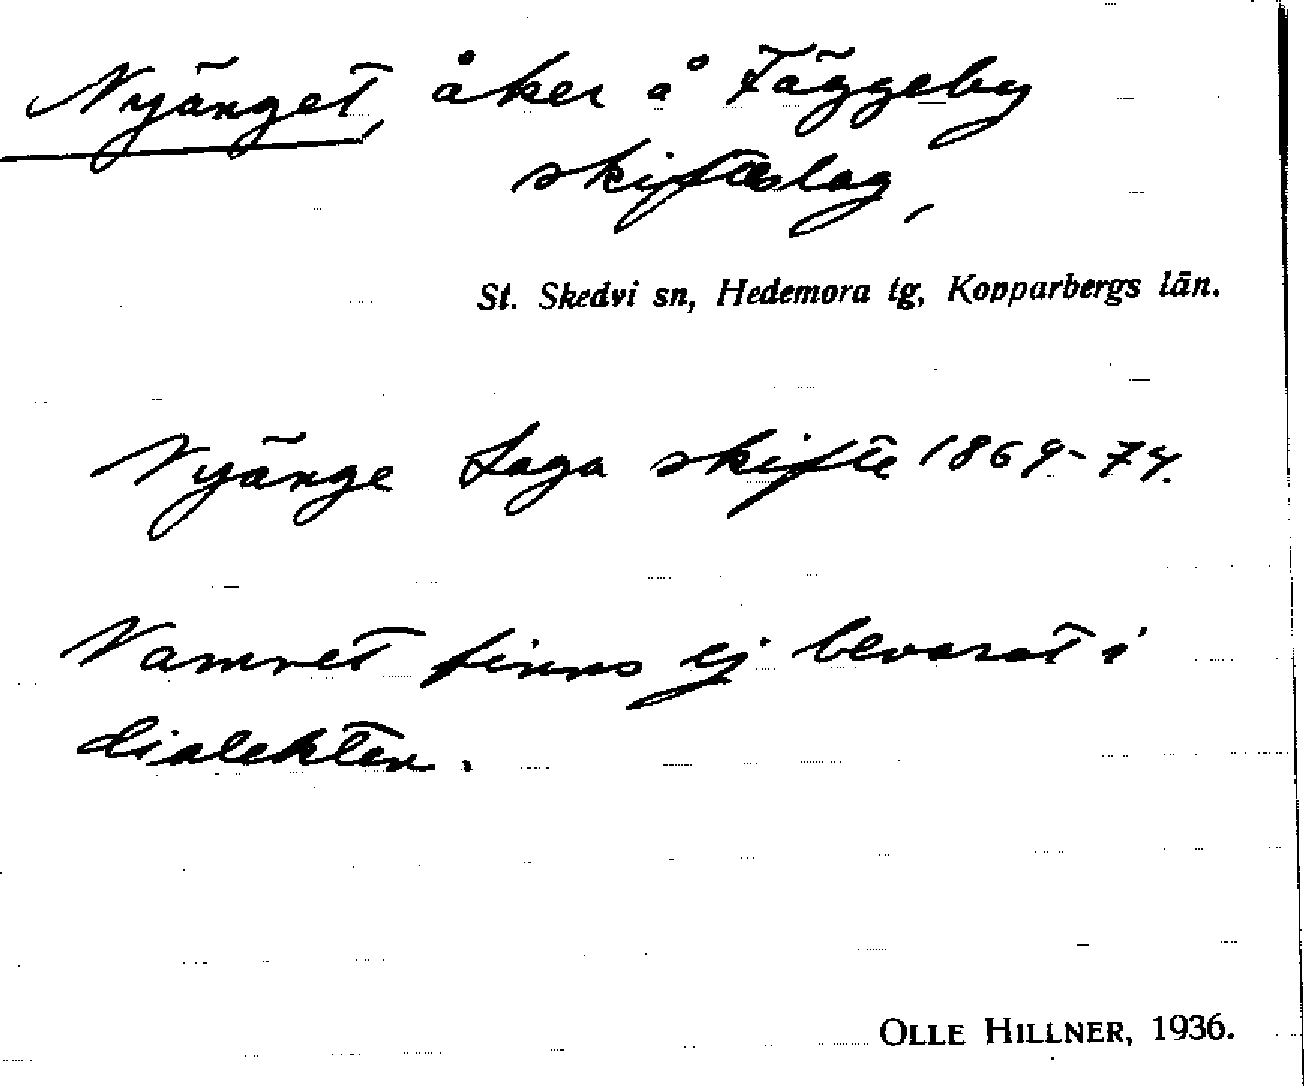 Nyänget, åker å Fäggeby
skifteslag,
St. Skedvi sn, Hedemora tg, Kopparbergs län.
Nyänge Laga skifte 1869-74.
Namnet finns ej bevarat i
dialekten.
OLLE HILLNER, 1936.